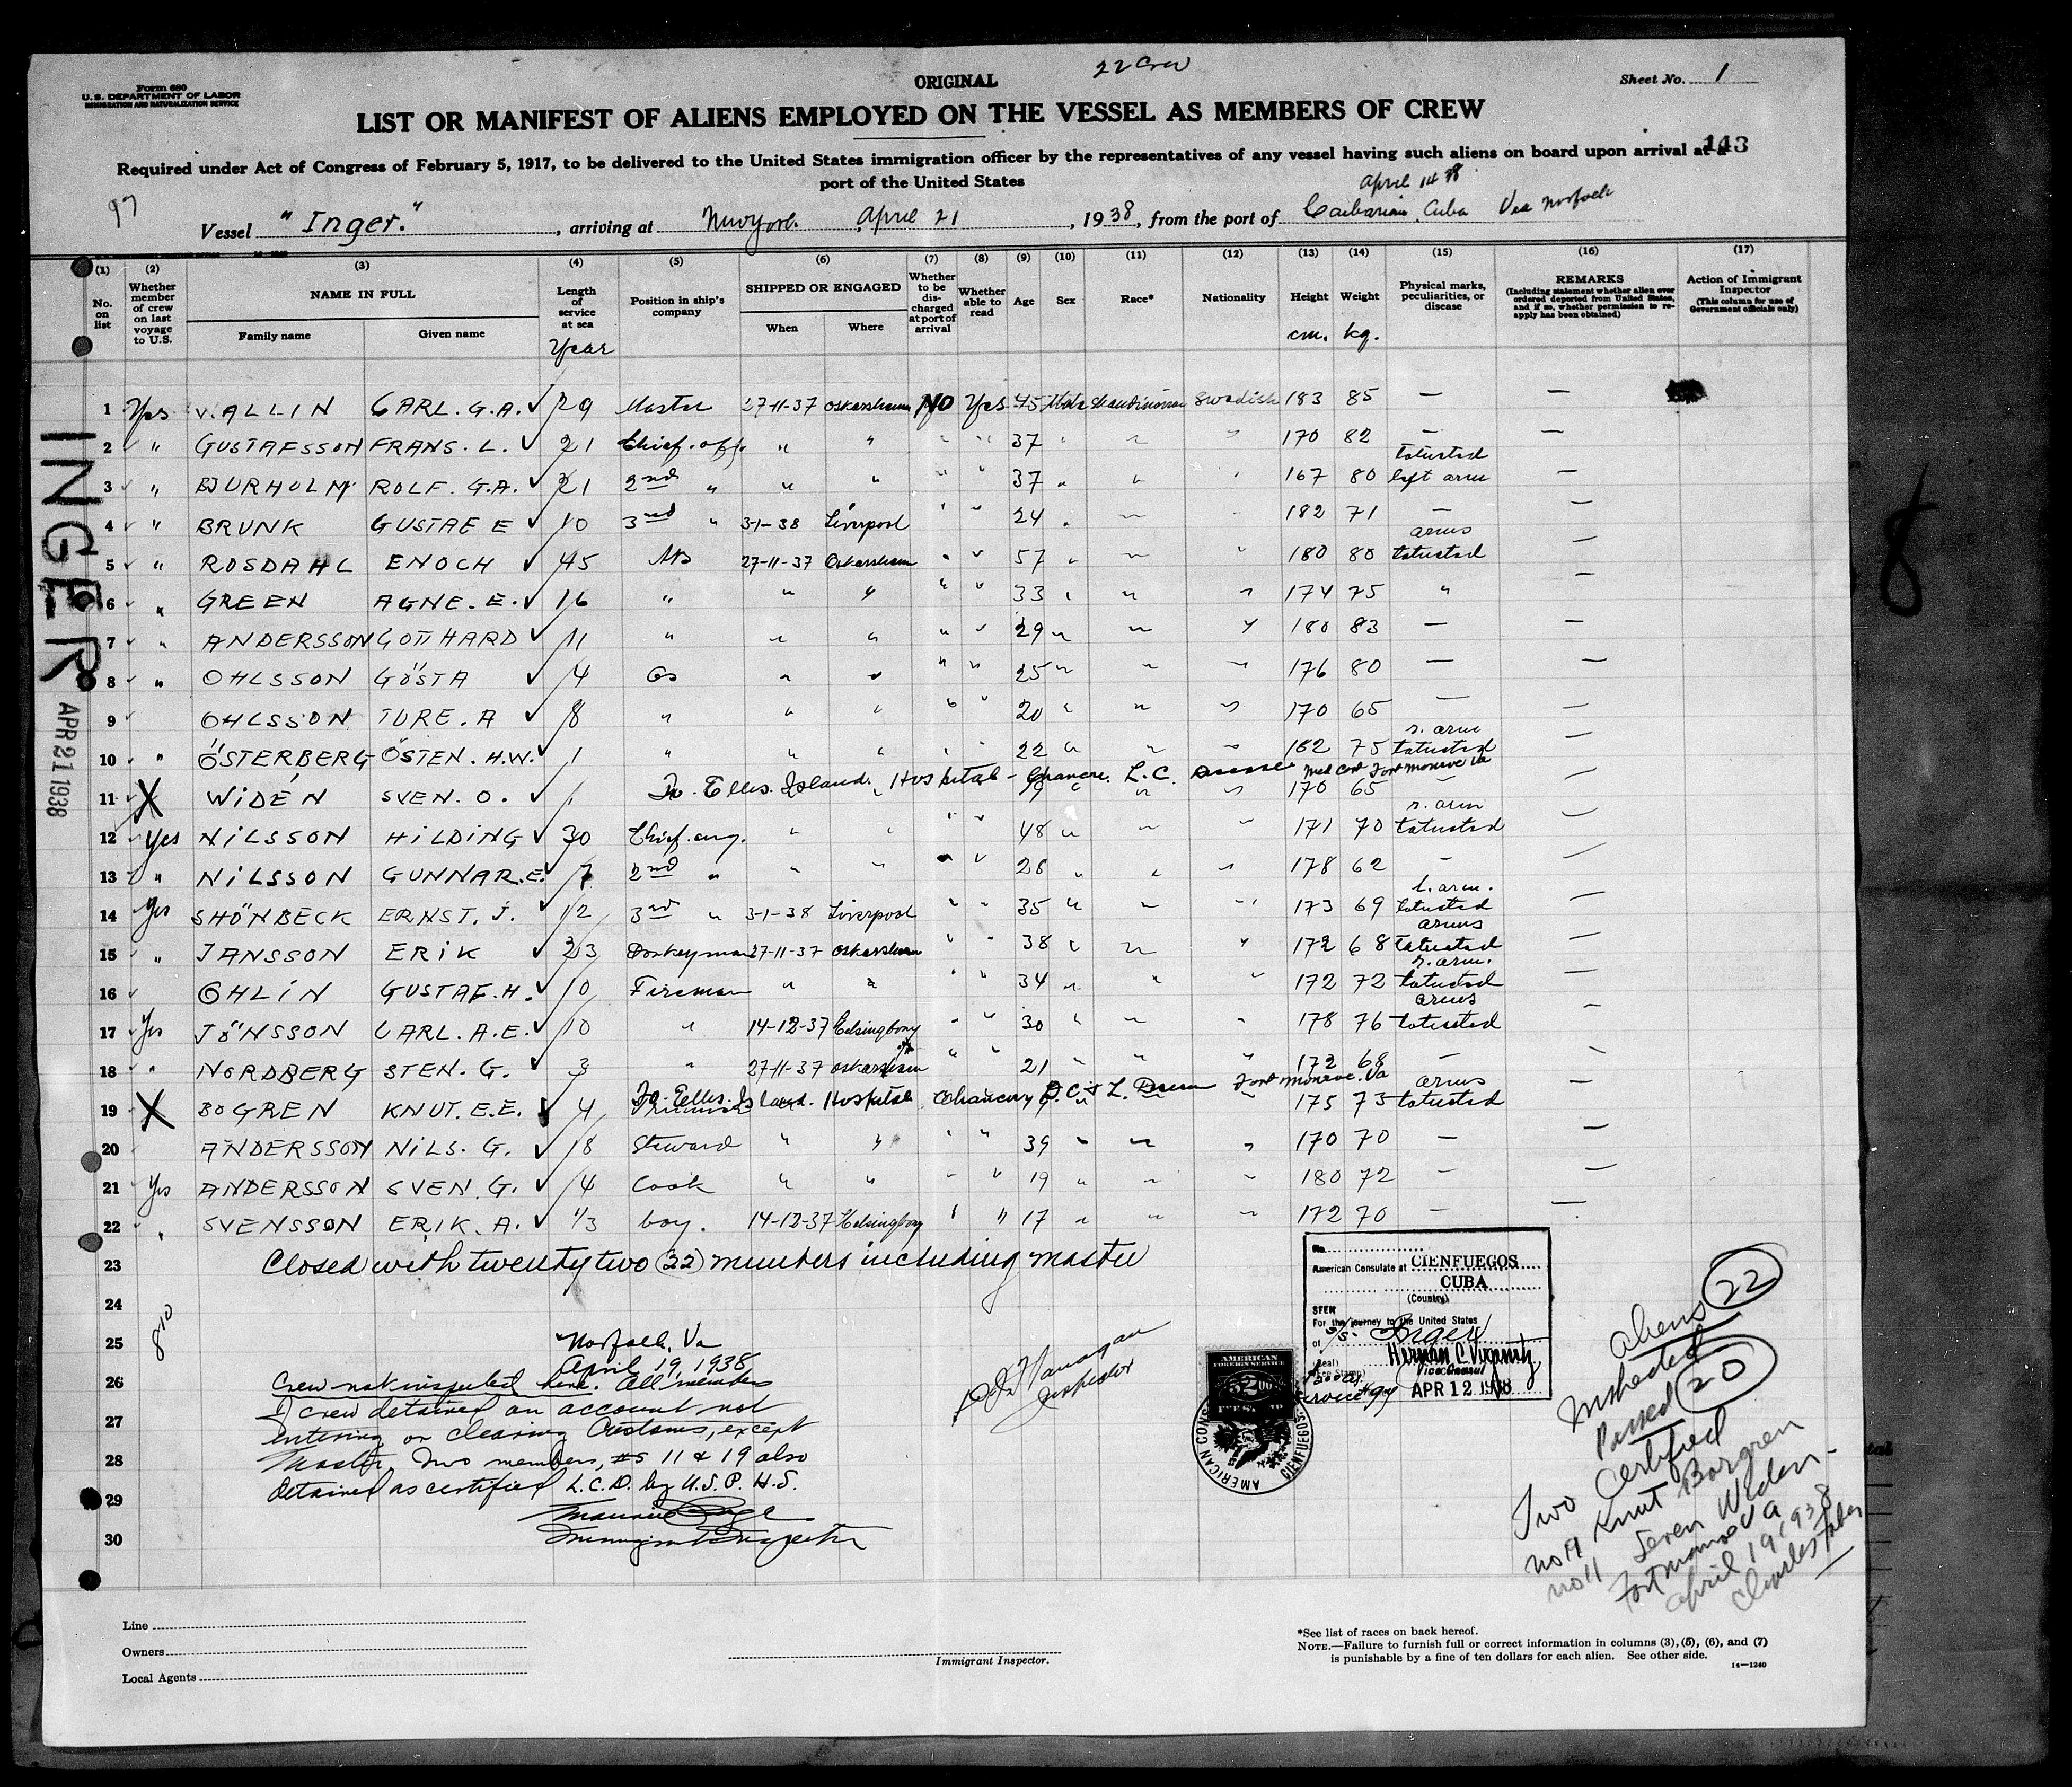 22 Crew
Form 680
U.S. DEPARTMENT OF LABOR
IMMIGRATION AND NATURALIZATION SERVICE
ORIGINAL
Sheet No. 1
LIST OR MANIFEST OF ALIENS EMPLOYED ON THE VESSEL AS MEMBERS OF CREW
143
Required under Act of Congress of February 5, 1917, to be delivered to the United States immigration officer by the representatives of any vessel having such aliens on board upon arrival at a
port of the United States
April 14 38
97
Vessel "Inger.", arriving at New York. April 21, 1938, from the port of Caibarien, Cuba Via Norfolk
(1) (2) (3) (4) (5) (6) (7) (8) (9) (10) (11) (12) (13) (14) (15) (16) (17)
No. on list
Whether member of crew on last voyage to U.S.
NAME IN FULL
Family name
Given name
Length of service at sea
Year
Position in ship's company
SHIPPED OR ENGAGED
When
Where
Whether to be discharged at port of arrival
Whether able to read
Age
Sex
Race*
Nationality
Height
cm.
Weight
kg.
Physical marks, peculiarities, or disease
REMARKS
(Including statement whether alien ever ordered deported from United States, and if so, whether permission to reapply has been obtained)
Action of Immigrant Inspector
(This column for use of Government officials only)
1 Yes v. ALLIN CARL. G.A. ✓ 29 Master 27-11-37 Oskarshamn NO Yes 45 Male Skandinavian Swedish 183 85 — —
2 ✓ " GUSTAFSSON FRANS. L. ✓ 21 Chief. off. " " " " 37 " " " 170 82 — —
3 ✓ " BJURHOLM ROLF. G.A. ✓ 21 2nd " " " " " 37 " " " 167 80 tatuated left arm —
4 ✓ " BRUNK GUSTAF E ✓ 10 3rd " 3-1-38 Liverpool " " 24 " " " 182 71 — —
5 ✓ " ROSDAHL ENOCH ✓ 45 AB 27-11-37 Oskarshamn " " 57 " " " 180 80 arms tatuated —
6 " GREEN AGNE. E. ✓ 16 " " " " " 33 " " " 174 75 " —
7 ✓ " ANDERSSON GOTTHARD ✓ 11 " " " " " 29 " " " 180 83 — —
8 ✓ " OHLSSON GÖSTA ✓ 4 OS " " " " 25 " " " 176 80 — —
9 ✓ OHLSSON TURE. A ✓ 8 " " " " " 20 " " " 170 65 — —
10 ✓ " ÖSTERBERG ÖSTEN. H.W. ✓ 1 " " " " " 22 " " " 182 75 r. arm tatuated —
To. Ellis. Island. Hospital - Chancre. L.C. Disease Med Cert Fort Monroe Va
11 ✓ X WIDÉN SVEN. O. ✓ 1 19 " " " 170 65 — —
12 ✓ Yes NILSSON HILDING ✓ 30 Chief. eng. " " " " 48 " " " 171 70 r. arm tatuated —
13 ✓ " NILSSON GUNNAR. E. ✓ 7 2nd " " " " " 28 " " " 178 62 — —
14 ✓ Yes SHÖNBECK ERNST. J. ✓ 12 3rd " 3-1-38 Liverpool " " 35 " " " 173 69 l. arm. tatuated —
15 ✓ " JANSSON ERIK ✓ 23 Donkeyman 27-11-37 Oskarshamn " " 38 " " " 172 68 arms tatuated —
16 ✓ OHLIN GUSTAF. H. ✓ 10 Fireman " " " " 34 " " " 172 72 r. arm. tatuated —
17 ✓ Yes JÖNSSON CARL. A.E. ✓ 10 " 14-12-37 Helsingborg " " 30 " " " 178 76 arms tatuated —
18 ✓ " NORDBERG STEN. G. ✓ 3 " 27-11-37 Oskarshamn " " 21 " " " 172 68 — —
To. Ellis. Island. Hospital Chancre D.C. & L. Disease Fort Monroe. Va
19 ✓ X BOGREN KNUT. E.E. ✓ 4 175 73 arms tatuated —
20 ANDERSSON NILS. G. ✓ 18 Steward " " " " 39 " " " 170 70 — —
21 ✓ Yes ANDERSSON SVEN. G. ✓ 4 Cook " " " " 19 " " " 180 72 — —
22 ✓ " SVENSSON ERIK. A. ✓ 1/3 boy. 14-12-37 Helsingborg " " 17 " " " 172 70 — —
23 Closed with twenty two (22) members including master
24
25 Norfolk, Va
April 19, 1938
26 Crew not inspected here. All members
of crew detained on account not
27 entering or clearing Customs, except
28 Master. Two members, #s 11 & 19 also
detained as certified L.C.D. by U.S.P.H.S.
29 Maurice Page
30 Immigrant Inspector
8 10
Flanagan
Inspector
No.
American Consulate at CIENFUEGOS
CUBA
(Country)
SEEN
For the journey to the United States
of S/S. Inger
(Seal)
Vice Consul
APR 12 1938
AMERICAN
FOREIGN SERVICE
$2.00
AMERICAN CONSULATE CIENFUEGOS
Aliens 22
Inspected
Passed 20
Two Certified
No 19 Knut Borgren
No 11 Seven Widen -
Fort Monroe Va
April 19 1938
Charles
INGER
APR 21 1938
8
Line
Owners
Local Agents
Immigrant Inspector.
*See list of races on back hereof.
NOTE.—Failure to furnish full or correct information in columns (3), (5), (6), and (7)
is punishable by a fine of ten dollars for each alien. See other side.
14—1240